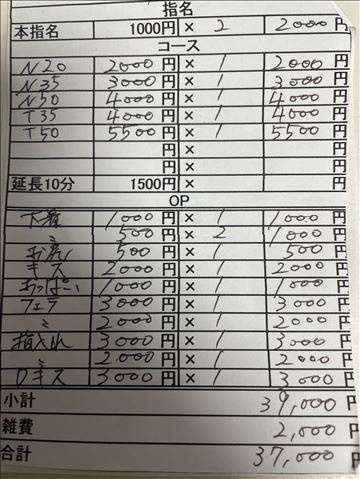 指名
本指名 1000円 × 2 2000円
コース
N20 2000円 × 1 2000円
N35 3000円 × 1 3000円
N50 4000円 × 1 4000円
T35 4000円 × 1 4000円
T50 5500円 × 1 5500円
円 × 円
円 × 円
延長10分 1500円 × 円
OP
下着 1000円 × 1 1000円
〃 500円 × 2 1000円
お尻 500円 × 1 500円
キス 2000円 × 1 2000円
おっぱい 1000円 × 1 1000円
フェラ 3000円 × 1 3000円
〃 2000円 × 1 2000円
指入れ 3000円 × 1 3000円
〃 2000円 × 1 2000円
Dキス 3000円 × 1 3000円
小計 39,000 円
雑費 2,000 円
合計 37,000 円